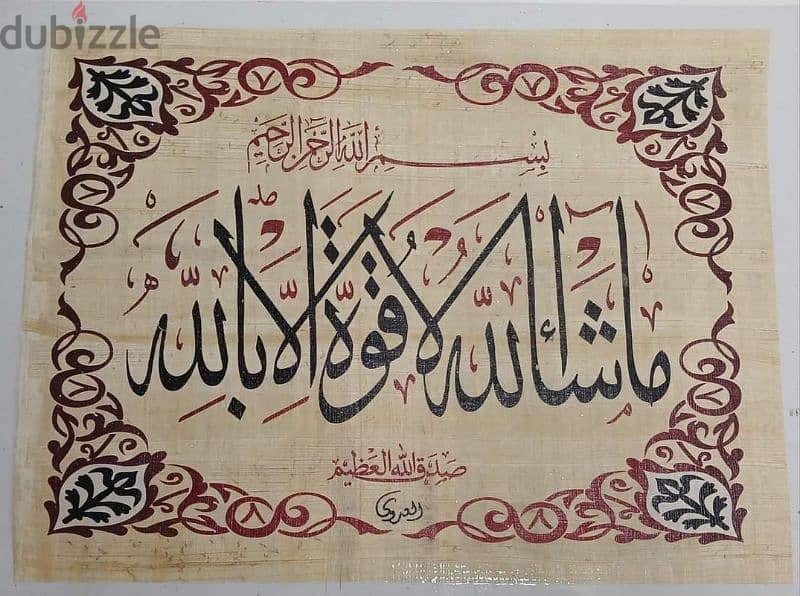 dubizzle
بسم الله الرحمن الرحيم
ما شاء الله لا قوة إلا بالله
صدق الله العظيم